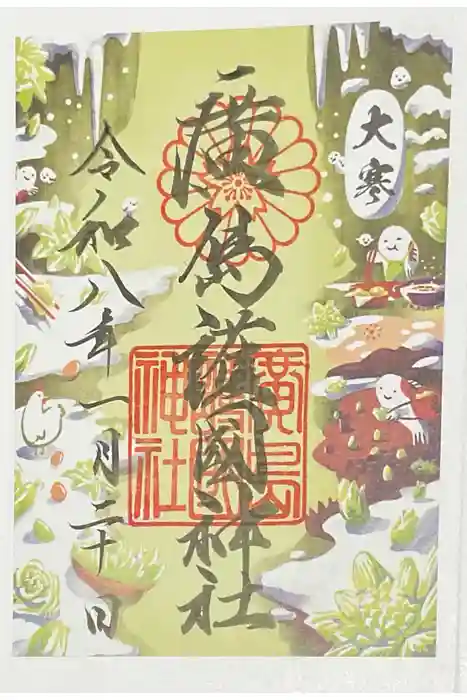 大寒
廣島護國神社
廣島護國神社
令和八年一月二十日